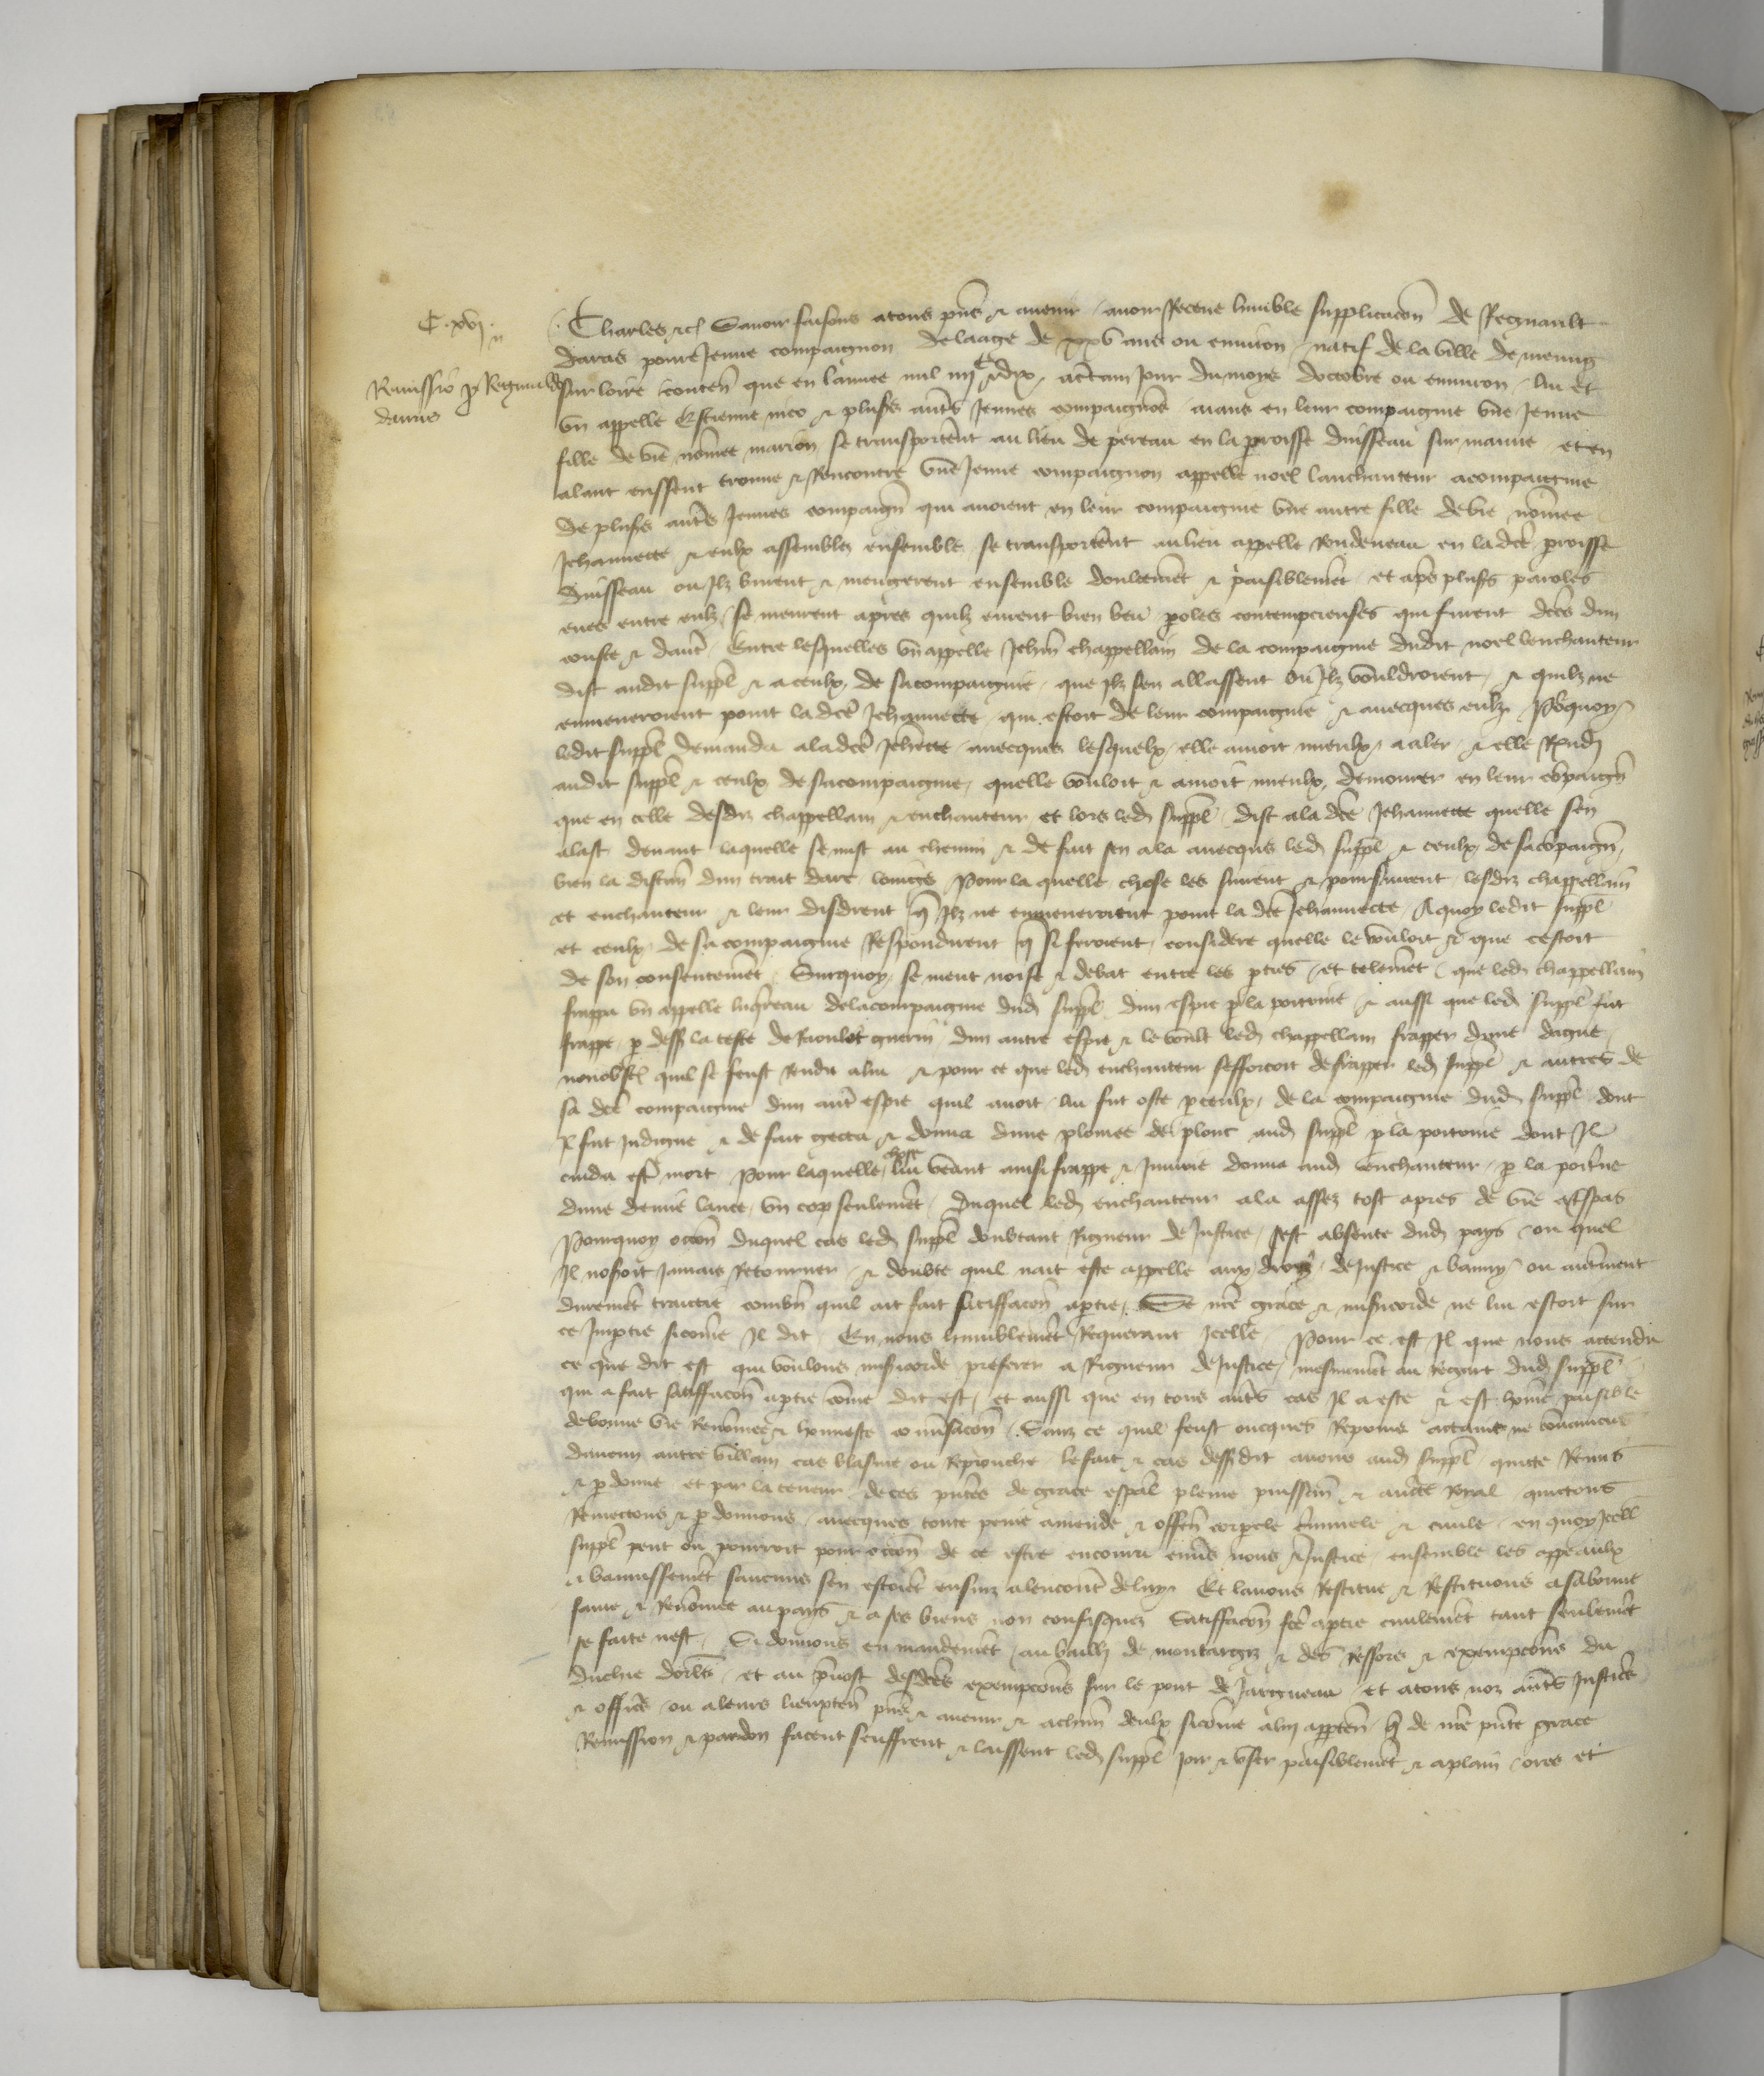 C. xvj.
Remissio p Regnauldo
daures
Charles etc. Sauoir faisons atous pns et auenir / auoir Receue lumble supplicacon de Regnault
daras poure Jeune compaignon de laage de xxv ans ou enuiron / natif de la ville de meung
sur loire / conten que en lannee mil iiij C et dix / actain jour du moys doctobre ou enuiron / lui et
vn appelle Estienne nico et plus auts Jeunes compaignos / aians en leur compaignie vne Jeune
fille de vie nomee marion se transporterent au lieu de pereau en la proisse duisseau sur mauue et en
alant eussent trouue et Rencontre vn Jeune compaignon appelle noel lanchanteur acompaignie
de plus auts Jeunes compaign qui auoient en leur compaignie vne autre fille de vie nomee
Jehannette et eulx assemblez ensemble se transporterent au lieu appelle Rondeneau en la dce proisse
duisseau ou Ilz burent et mengerent ensemble doulcemet et paisiblemet et apres plus paroles
eues entre eulx / se meurent apres quilz eurent bien beu poles contempcieuses qui furent dces dun
couste et dautre Entre lesquelles vn appelle Jehn chappellain de la compaignie dudit noel lenchanteur
dist audit suppl et a ceulx de sa compaignie / que Ilz sen allassent ou Ilz vouldroient / et quilz ne
enmeneroient point la dce Jehannette qui estoit de leur compaignie et auecques eulx Pourquoy
ledit suppl demanda ala dce Jehnette / auecques lesquelx elle amoit mieulx a aler / et elle Rnd
audit suppl et ceulx de sa compaignie / quelle vouloit et amoit mieulx demourer en leur copaign
que en celle desdiz chappellain et enchanteur et lors led suppl dist ala dce Jehannette quelle sen
alast deuant laquelle se mist au chemin et de fait sen ala auecques led suppl et ceulx de sa copaign
bien la distan dun trait darc loings Pour la quelle chose les suirent et poursuirent lesdiz chappellain
et enchanteur et leur disdrent q Ilz ne enmeneroient point la dce Jehannette / Aquoy ledit suppl
et ceulx de sa compaignie Respondirent q si feroient / considere quelle le vouloit et que cestoit
de son consentemet / Surquoy / se meut noise et debat entre les pties / et telemet que led chappellain
frappa vn appelle lugereau de la compaignie dud suppl dun espie p la poitrine et aussi que led suppl fut
frappe p dess la teste de Raoulet guerin dun autre espie et le voult led chappellain frapper dune dague
nonobst quil se feust Rendu alui et pour ce que led enchanteur sefforcoit de frapper led suppl et autres de
sa dce compaignie dun aut espie quil auoit / lui fut oste p ceulx de la compaignie dud suppl dont
Il fut Indigne et de fait gecta et donna dune plomee de plonc aud suppl p la poitrine dont Il
cuida est mort Pour laquelle chose lui veant ainsi frappe et Iniurie donna aud lenchanteur / p la poitrine
dune demie lance / vn cop seulemet / Duquel led enchanteur ala assez tost apres de vie a trespas
Pourquoy occon duquel cas led suppl doubtant Rigueur de Justice / sest absente dud pays / ou quel
Il noseroit Jamais Retourner / et doubte quil nait este appelle aux droiz de Justice et banny ou autrement
duremet traictie combn quil ait fait satisfacon aptie / Se nre grace et misericorde ne lui estoit sur
ce Impartie sicome Il dit / En nous humblemet Requerant Icelle / Pour ce est Il que nous attendu
ce que dit est qui voulons misericorde preferer a Rigueur de Justice / mesmemet au Regart dud suppl
qui a fait satiffacon aptie come dit est / et aussi que en tous auts cas Il a este et est home paisible
de bonne vie Renomee et honneste conuersacon / Sanz ce quil feust oncques Repeins actaint ne conuaincu
daucun autre villain cas blasme ou Reprouche le fait et cas dessusdit auons aud suppl quicte Remis
et pdonne et par la teneur de ces pntes de grace espal pleine puissan et aucte Roial quictons
Remectons et pdonnons / auecques toute peine amende et offen corpele criminele et ciuile en quoy Icell
suppl peut ou pourroit pour occon de ce estre encouru enuers nous et Justice / ensemble les appeaulx
et bannissemet saucuns sen estoiet ensuiz alencontre de luy Et lauons Restitue et Restituons a sa bonne
fame et Renomee au pays et a ses biens non confisquez Satisfacon fce aptie ciuilemet tant seulemet
se faite nest / Si donnons en mandemet / au bailli de montargiz et des Ressors et exempcons du
duchie dorls / et au preuost desdces exempcons sur le pont de Jargueau et atous noz auts Justicie
et officie / ou aleurs lieuxten pns et auenir et achun deulx sicome alui apptien q de nre pnte grace
Remission et pardon facent seuffrent et laissent led suppl joir et vser paisiblemet et aplain ores et